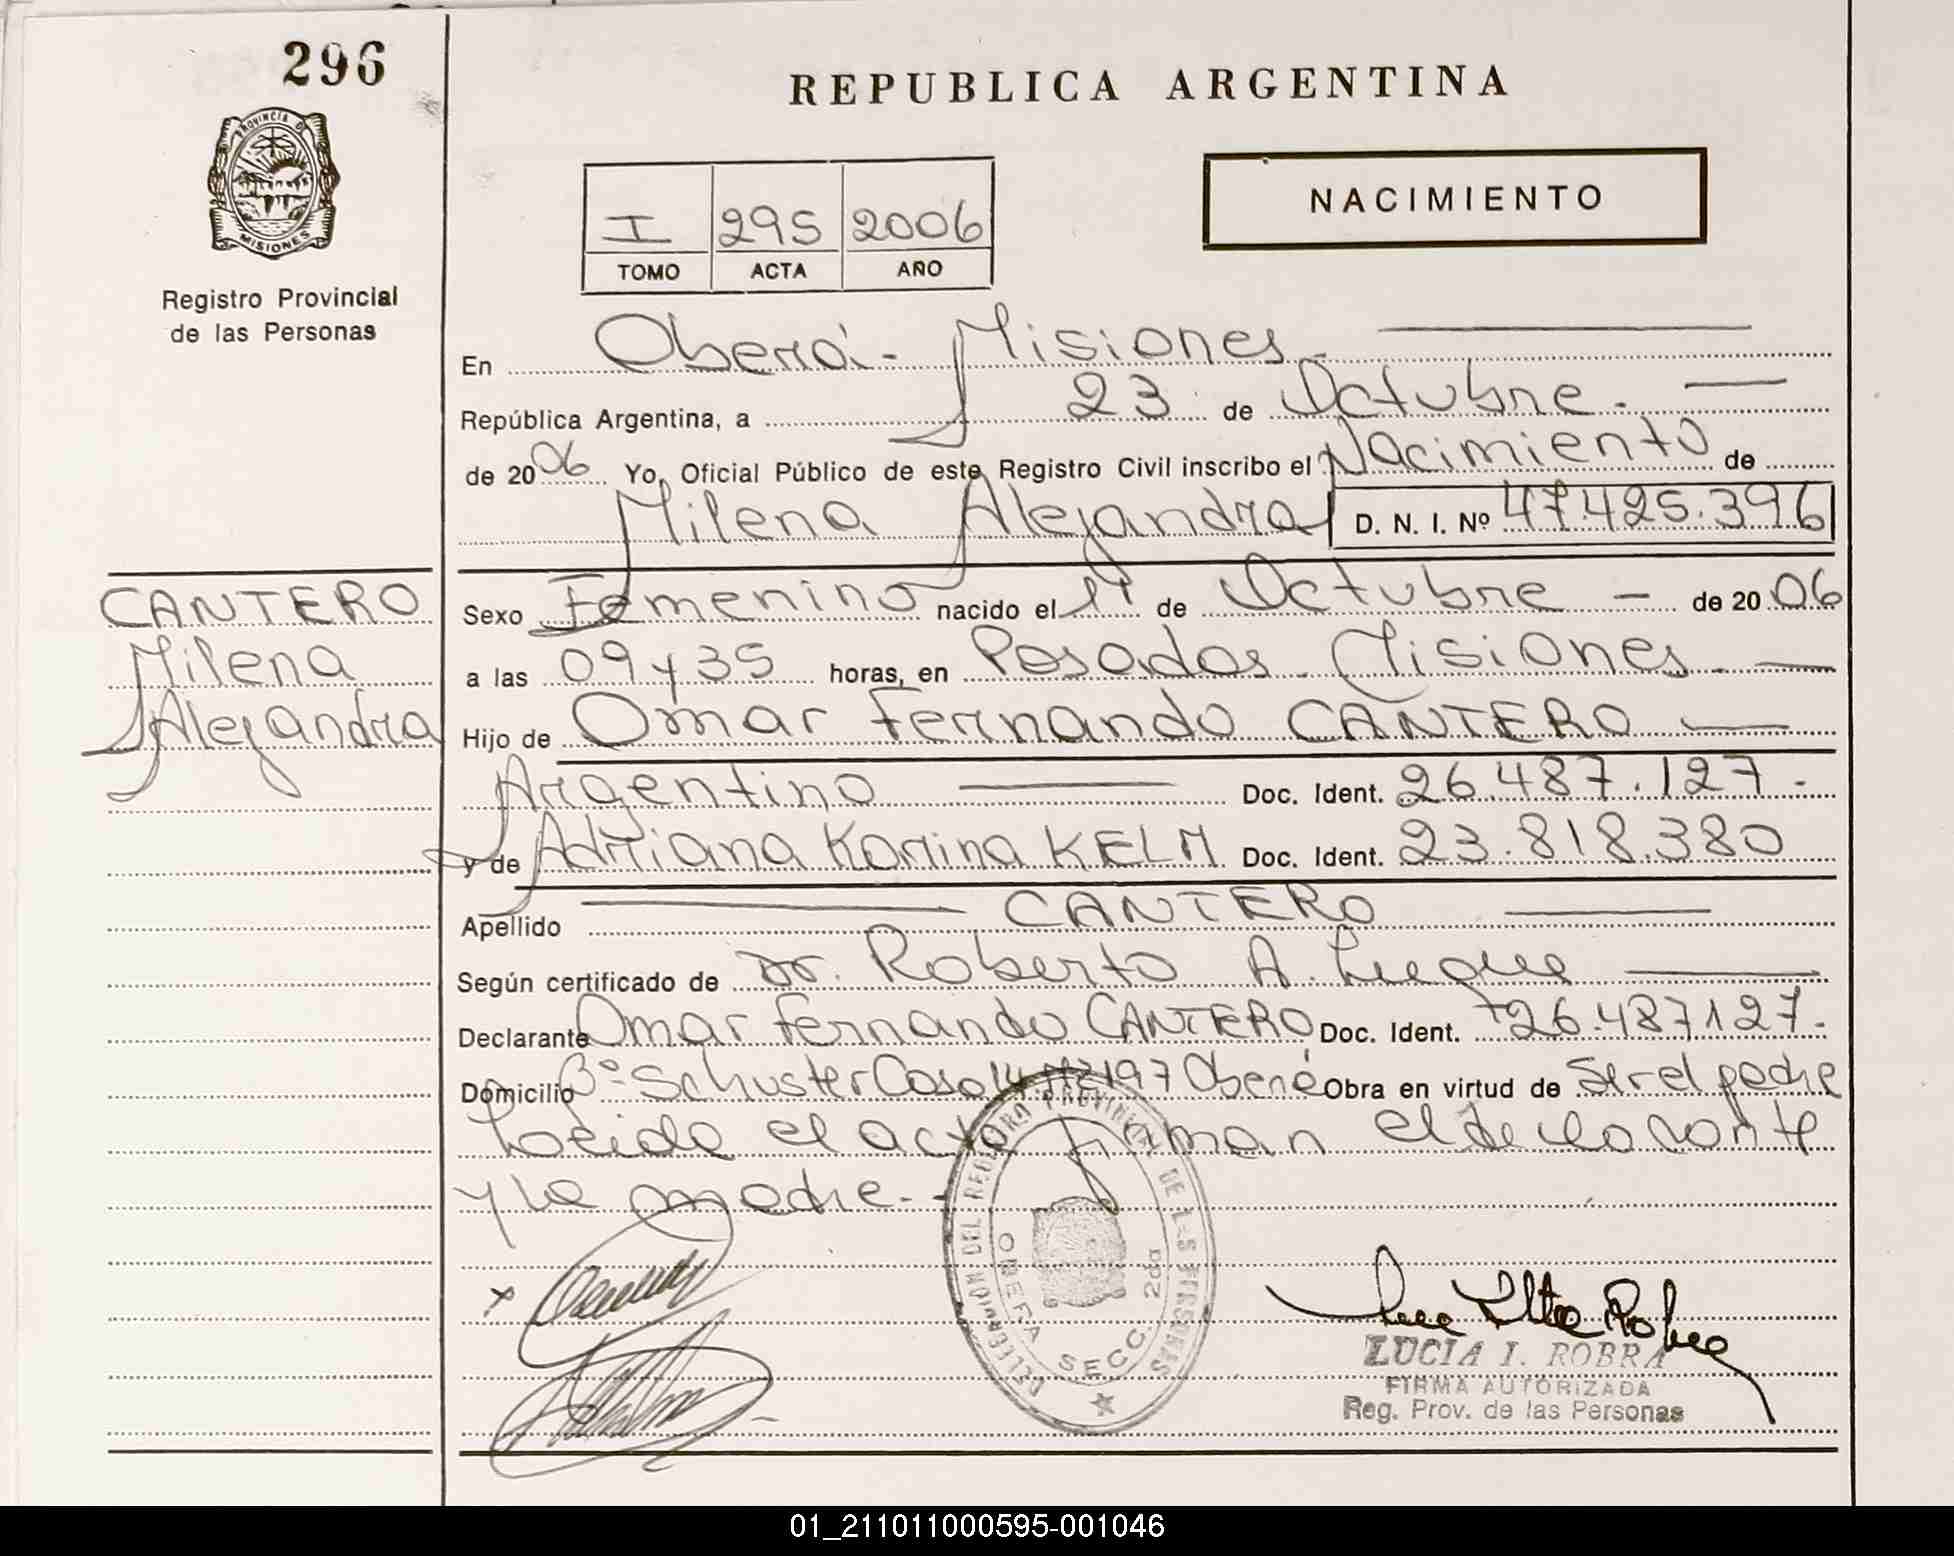 296
PROVINCIA D
MISIONES
Registro Provincial
de las Personas
REPUBLICA ARGENTINA
NACIMIENTO
I 295 2006
TOMO ACTA AÑO
En Oberá - Misiones
República Argentina, a 23 de Octubre.
de 2006 Yo, Oficial Público de este Registro Civil inscribo el Nacimiento de
Milena Alejandra D. N. I. Nº 47.425.396
CANTERO
Milena
Alejandra
Sexo Femenino nacido el 1º de Octubre - de 2006
a las 09 y 35 horas, en Posadas Misiones
Hijo de Omar Fernando CANTERO
Argentino Doc. Ident. 26.487.127.
y de Adriana Karina KELM Doc. Ident. 23.818.380
Apellido CANTERO
Según certificado de Dr. Roberto A. Luque
Declarante Omar Fernando CANTERO Doc. Ident. 26.487127.
Domicilio Bº Schuster Casa 14 Mz 197 Oberá Obra en virtud de Ser el padre
Leida el acta firman el declarante
y la madre.
DELEGACION DEL REGISTRO PROVINCIAL DE LAS PERSONAS
OBERA SECC. 2da
LUCIA I. ROBRA
FIRMA AUTORIZADA
Reg. Prov. de las Personas
01_211011000595-001046